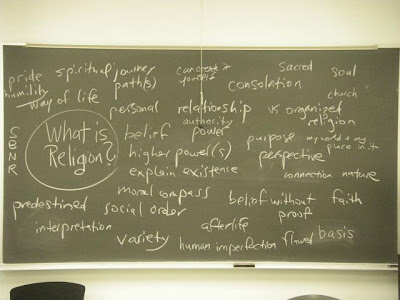 pride
humility
spiritual journey
path(s)
can create it
yourself
sacred
soul
consolation
church
way of life
personal
relationship
vs organized
religion
authority
SBNR
What is
Religion?
belief
power
purpose
my world + my
place in it
higher power(s)
perspective
explain existence
connection
nature
moral compass
predestined
social order
belief without
proof
faith
interpretation
afterlife
variety
human imperfection
flawed
basis